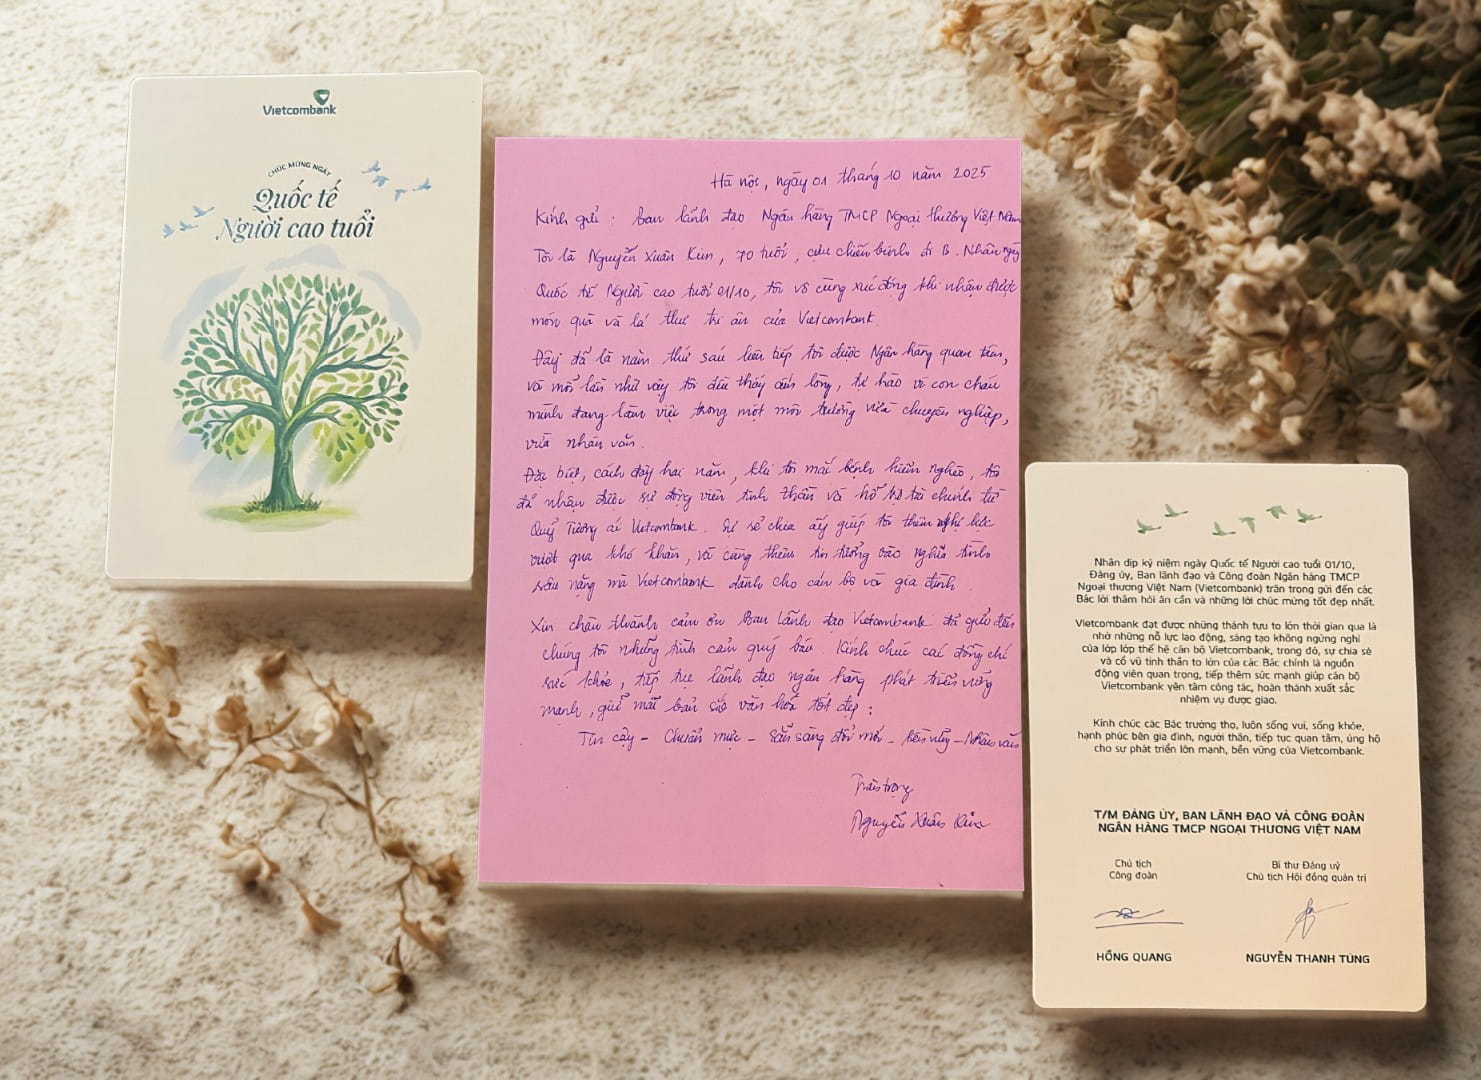 Vietcombank
CHÚC MỪNG NGÀY
Quốc tế
Người cao tuổi
Hà nội, ngày 01 tháng 10 năm 2025
Kính gửi : Ban lãnh đạo Ngân hàng TMCP Ngoại thương Việt Nam
Tôi là Nguyễn Xuân Kim, 70 tuổi, cựu chiến binh đi B. Nhân ngày
Quốc tế Người cao tuổi 01/10, tôi vô cùng xúc động khi nhận được
món quà và lá thư tri ân của Vietcombank.
Đây đã là năm thứ sáu liên tiếp tôi được Ngân hàng quan tâm,
và mỗi lần như vậy tôi đều thấy ấm lòng, tự hào vì con cháu
mình đang làm việc trong một môi trường vừa chuyên nghiệp,
vừa nhân văn.
Đặc biệt, cách đây hai năm, khi tôi mắc bệnh hiểm nghèo, tôi
đã nhận được sự động viên tinh thần và hỗ trợ tài chính từ
Quỹ Tương ái Vietcombank. Sự sẻ chia ấy giúp tôi thêm nghị lực
vượt qua khó khăn, và càng thêm tin tưởng vào nghĩa tình
sâu nặng mà Vietcombank dành cho cán bộ và gia đình.
Xin chân thành cảm ơn Ban lãnh đạo Vietcombank đã gửi đến
chúng tôi những tình cảm quý báu. Kính chúc các đồng chí
sức khỏe, tiếp tục lãnh đạo ngân hàng phát triển vững
mạnh, giữ mãi bản sắc văn hoá tốt đẹp :
Tin cậy - Chuẩn mực - Sẵn sàng đổi mới - Bền vững - Nhân văn
Trân trọng
Nguyễn Xuân Kim
Nhân dịp kỷ niệm ngày Quốc tế Người cao tuổi 01/10,
Đảng ủy, Ban lãnh đạo và Công đoàn Ngân hàng TMCP
Ngoại thương Việt Nam (Vietcombank) trân trọng gửi đến các
Bác lời thăm hỏi ân cần và những lời chúc mừng tốt đẹp nhất.
Vietcombank đạt được những thành tựu to lớn thời gian qua là
nhờ những nỗ lực lao động, sáng tạo không ngừng nghỉ
của lớp lớp thế hệ cán bộ Vietcombank, trong đó, sự chia sẻ
và cổ vũ tinh thần to lớn của các Bác chính là nguồn
động viên quan trọng, tiếp thêm sức mạnh giúp cán bộ
Vietcombank yên tâm công tác, hoàn thành xuất sắc
nhiệm vụ được giao.
Kính chúc các Bác trường thọ, luôn sống vui, sống khỏe,
hạnh phúc bên gia đình, người thân, tiếp tục quan tâm, ủng hộ
cho sự phát triển lớn mạnh, bền vững của Vietcombank.
T/M ĐẢNG ỦY, BAN LÃNH ĐẠO VÀ CÔNG ĐOÀN
NGÂN HÀNG TMCP NGOẠI THƯƠNG VIỆT NAM
Chủ tịch
Công đoàn
Bí thư Đảng uỷ
Chủ tịch Hội đồng quản trị
HỒNG QUANG
NGUYỄN THANH TÙNG